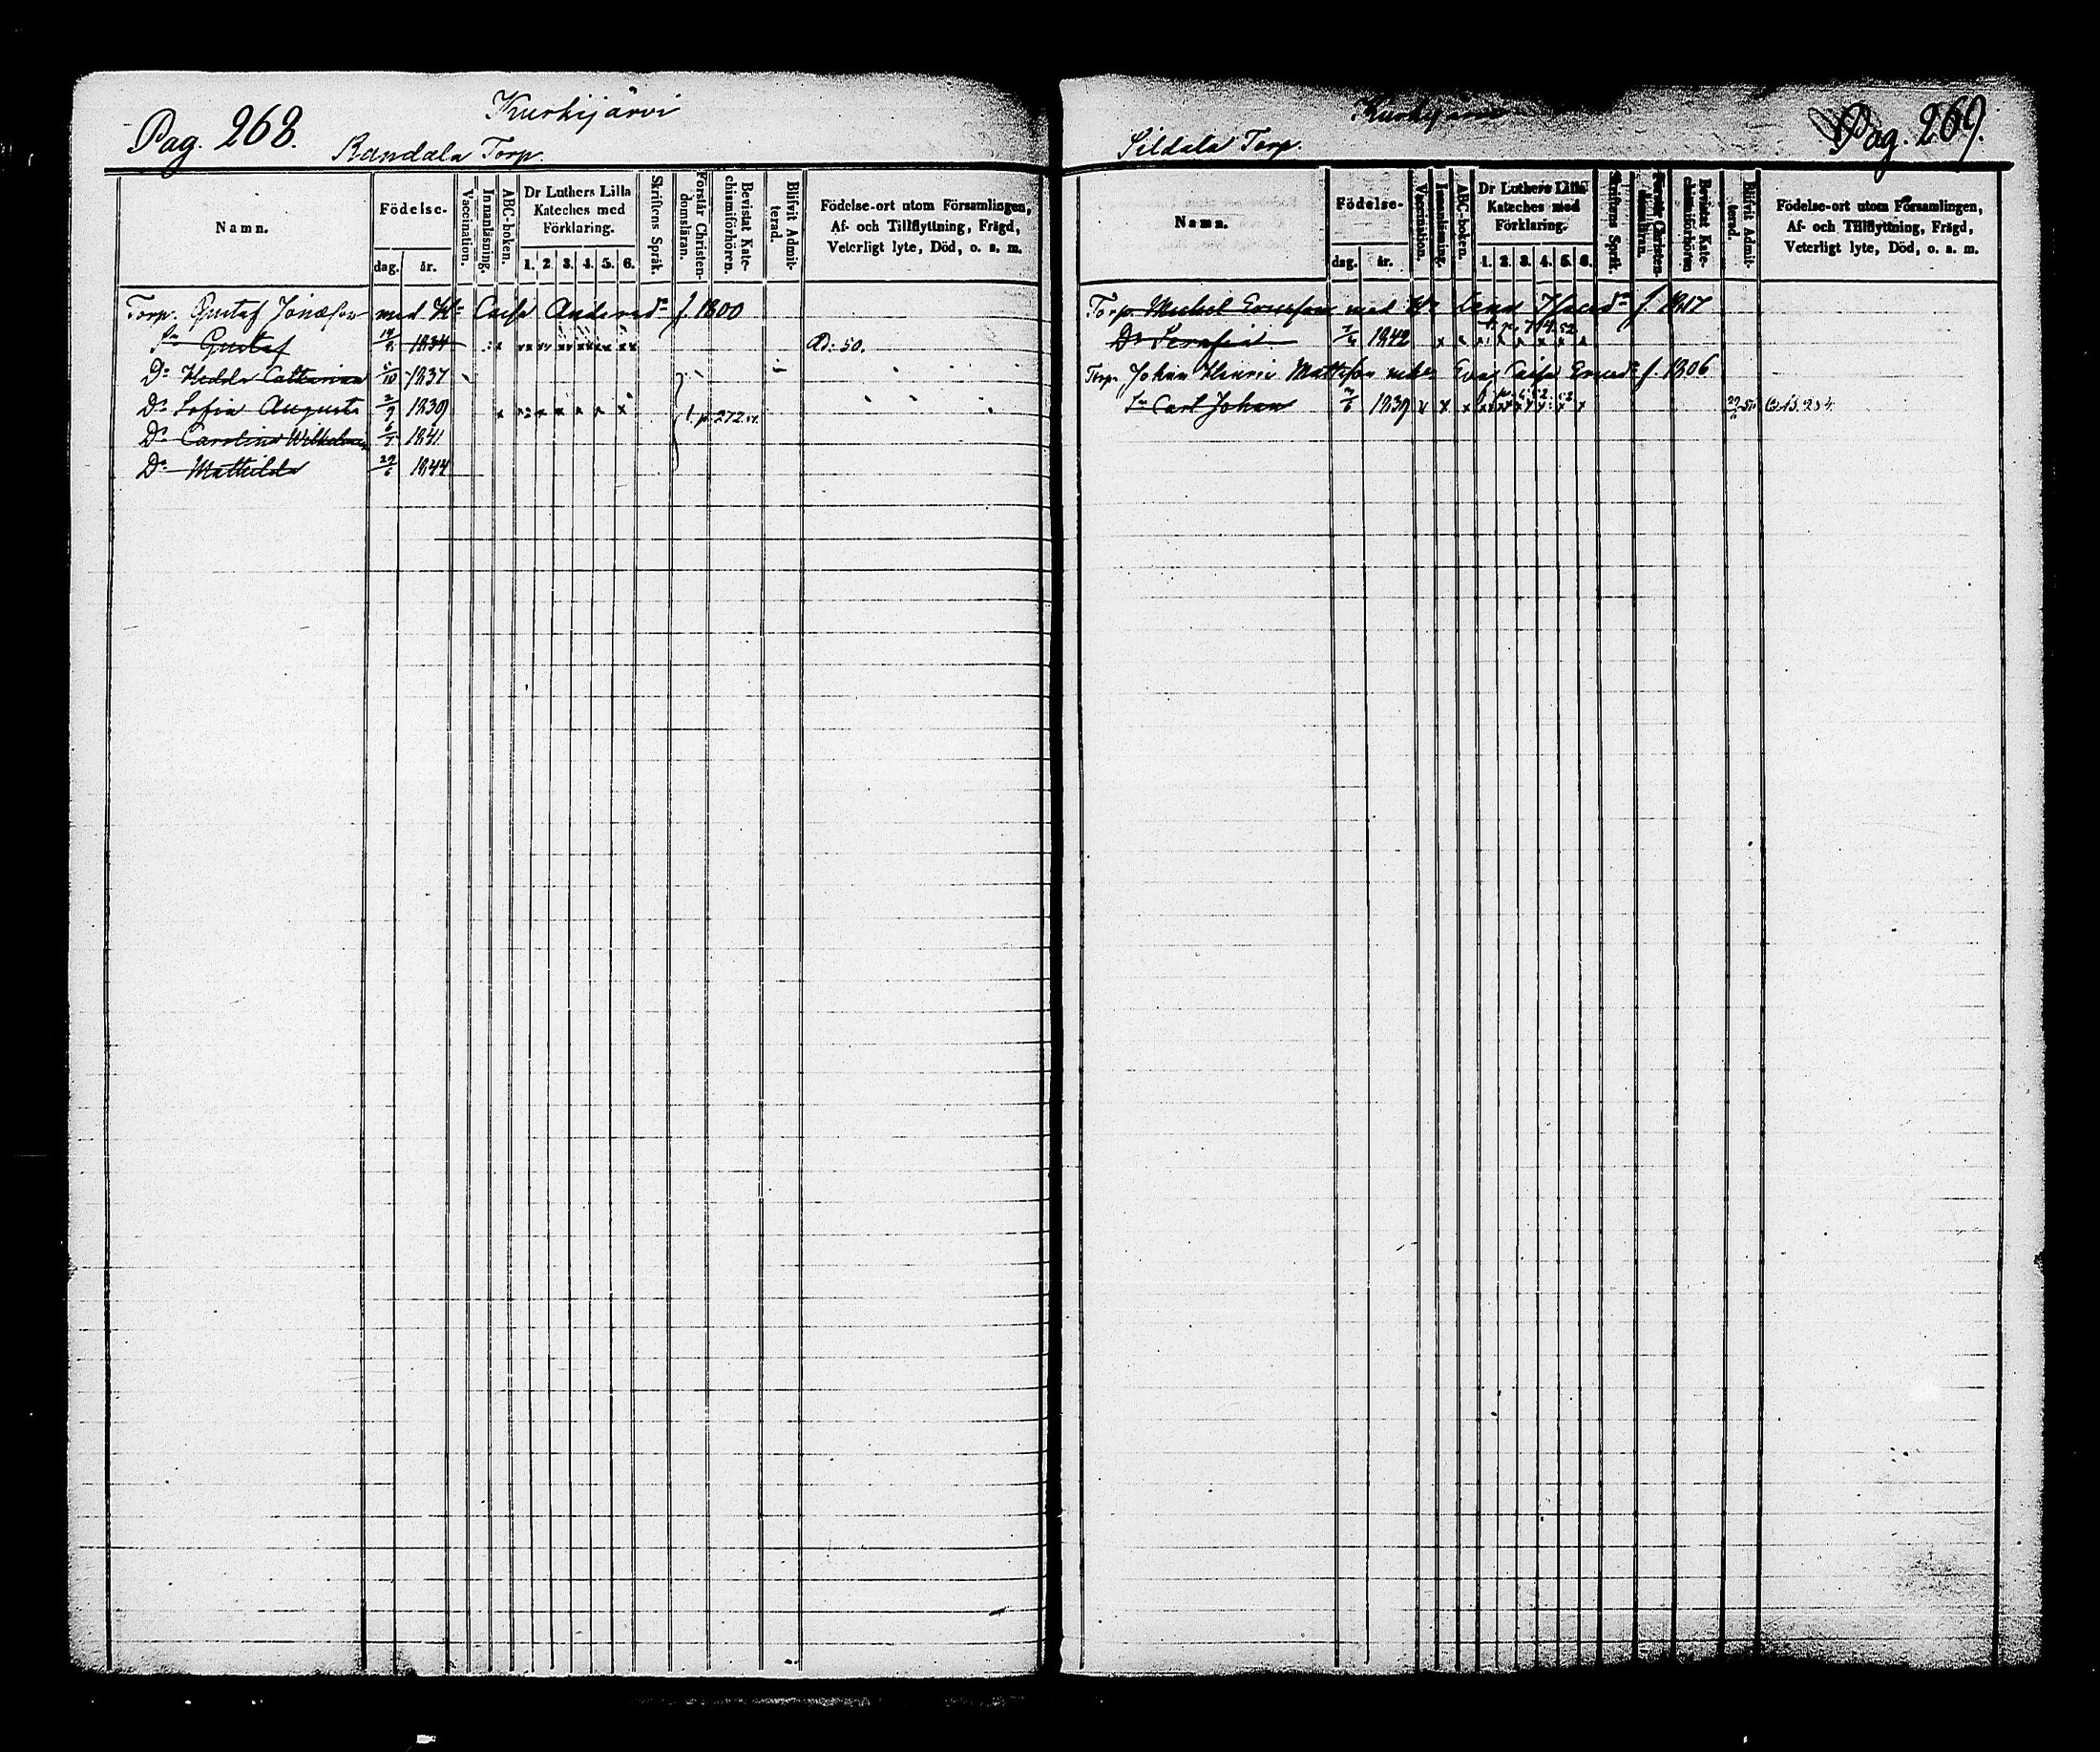 Pag. 268.
Kurkijärvi
Randala Torp.
Namn.
Födelse-
dag. år.
Vaccination.
Innanläsning.
ABC-boken.
Dr Luthers Lilla
Kateches med
Förklaring.
1. 2. 3. 4. 5. 6.
Skriftens Språk.
Förstår Christen-
domsläran.
Bevistat Kate-
chismiförhören.
Blifvit Admit-
terad.
Födelse-ort utom Församlingen,
Af- och Tillflyttning, Frägd,
Veterligt lyte, Död, o. s. m.
Torp. Gustaf Jonasson med H:u Caisa Andersd:r f. 1800
S:n Gustaf 1834 Ad: 50.
D:r Hedda Catharina 1837
D:r Sofia Augusta 2/9 1839 p. 272.
D:r Carolina Wilhelmina 1841
D:r Mathilda 29/6 1844
Kurkijärvi
Pag. 269.
Sildala Torp.
Namn.
Födelse-
dag. år.
Vaccination.
Innanläsning.
ABC-boken.
Dr Luthers Lilla
Kateches med
Förklaring.
1. 2. 3. 4. 5. 6.
Skriftens Språk.
Förstår Christen-
domsläran.
Bevistat Kate-
chismiförhören
Blifvit Admit-
terad.
Födelse-ort utom Församlingen,
Af- och Tillflyttning, Frägd,
Veterligt lyte, Död, o. s. m.
Torp. Michel Ericsson med H:u Lena Isacsd:r f.
D:r Serafia 1842
Torp. Johan Henric Mattsson Eva Caisa Ericsd:r f. 1806
S:n Carl Johan 1839